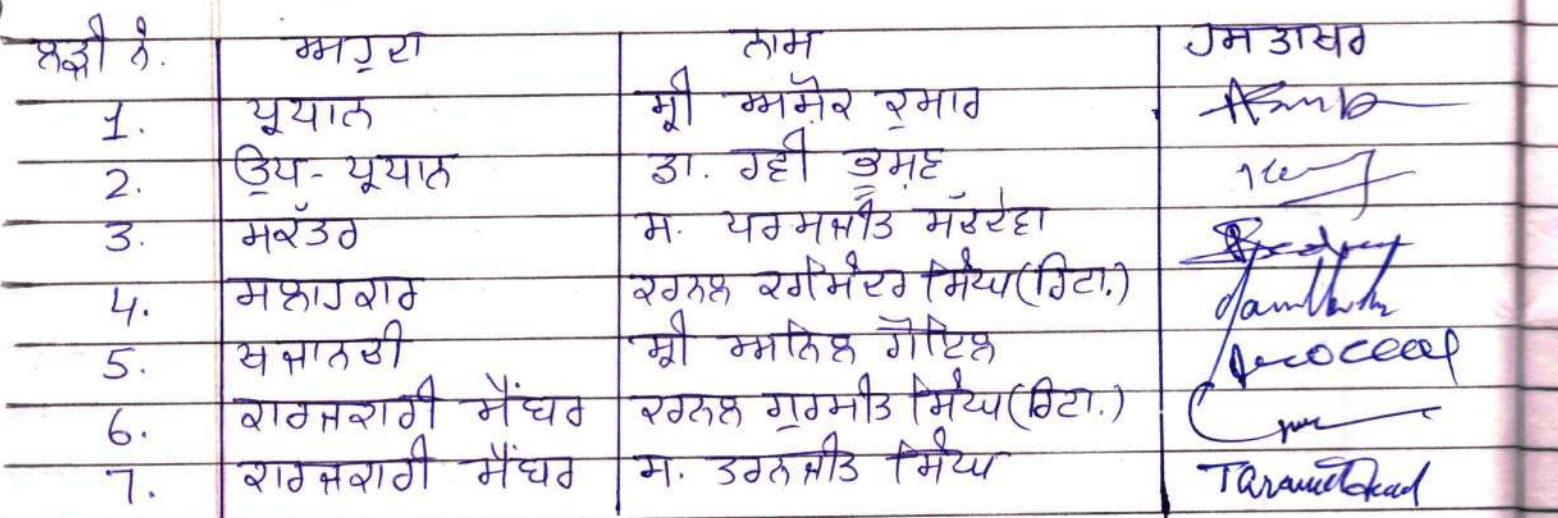 ਲੜੀ ਨੰ. ਅਹੁਦਾ ਨਾਮ ਹਸਤਾਖਰ
1. ਪ੍ਰਧਾਨ ਸ਼੍ਰੀ ਅਸ਼ੋਕ ਕੁਮਾਰ
2. ਉਪ-ਪ੍ਰਧਾਨ ਡਾ. ਰਵੀ ਭੂਸ਼ਣ
3. ਸਕੱਤਰ ਸ. ਪਰਮਜੀਤ ਸੱਚਦੇਵਾ
4. ਸਲਾਹਕਾਰ ਕਰਨਲ ਰਮਿੰਦਰ ਸਿੰਘ (ਰਿਟਾ.)
5. ਖਜਾਨਚੀ ਸ਼੍ਰੀ ਅਨਿਲ ਗੋਇਲ
6. ਕਾਰਜਕਾਰੀ ਮੈਂਬਰ ਕਰਨਲ ਗੁਰਮੀਤ ਸਿੰਘ (ਰਿਟਾ.)
7. ਕਾਰਜਕਾਰੀ ਮੈਂਬਰ ਸ. ਤਰਨਜੀਤ ਸਿੰਘ